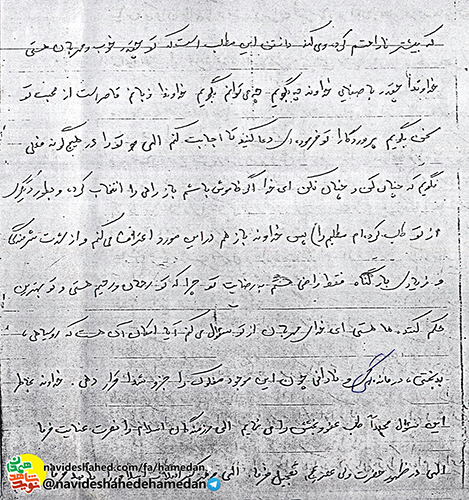 که بیشتر ناراحتم کرده و می‌کند دانستن این مطلب است که تو چقدر خوب و مهربان هستی
خداوندا چقدر با صفایی خداوندا چه بگویم چه می‌توانم بگویم خداوندا زبانم قاصر است از محبت تو
سخن بگویم پروردگارا تو فرموده‌ای دعا کنید تا اجابت کنم الهی من تو را در
نگویم که چنان کن و چنان نکن ای خدا اگر خاموش باشم باز راهی را انتخاب کرده و بطور دیگری
از تو طلب کرده‌ام مطلبم را پس خداوندا باز هم در این مورد اعتراف می‌کنم و از شدت شرمندگی
و زیادی بار گناه فقط راضی هستم به رضایت تو چرا که تو رحمان و رحیم هستی و تو بهترین
حکم کننده ما هستی ای خدای مهربان از تو سوال می‌کنم آیا امکان آن هست که روسیاهی،
بدبختی، درمانده‌گی و نادانی چون این موجود مفلوک را جزو شهدا قرار دهی. خداوندا بخاطر
این سوال مجدداً طلب عفو و بخشش را می نمایم الهی رزمندگان اسلام را نصرت عنایت فرما
الهی در ظهور حضرت ولی عصر عج تعجیل فرما. الهی
navideshahed.com/fa/hamedan
@navideshahedehamedan